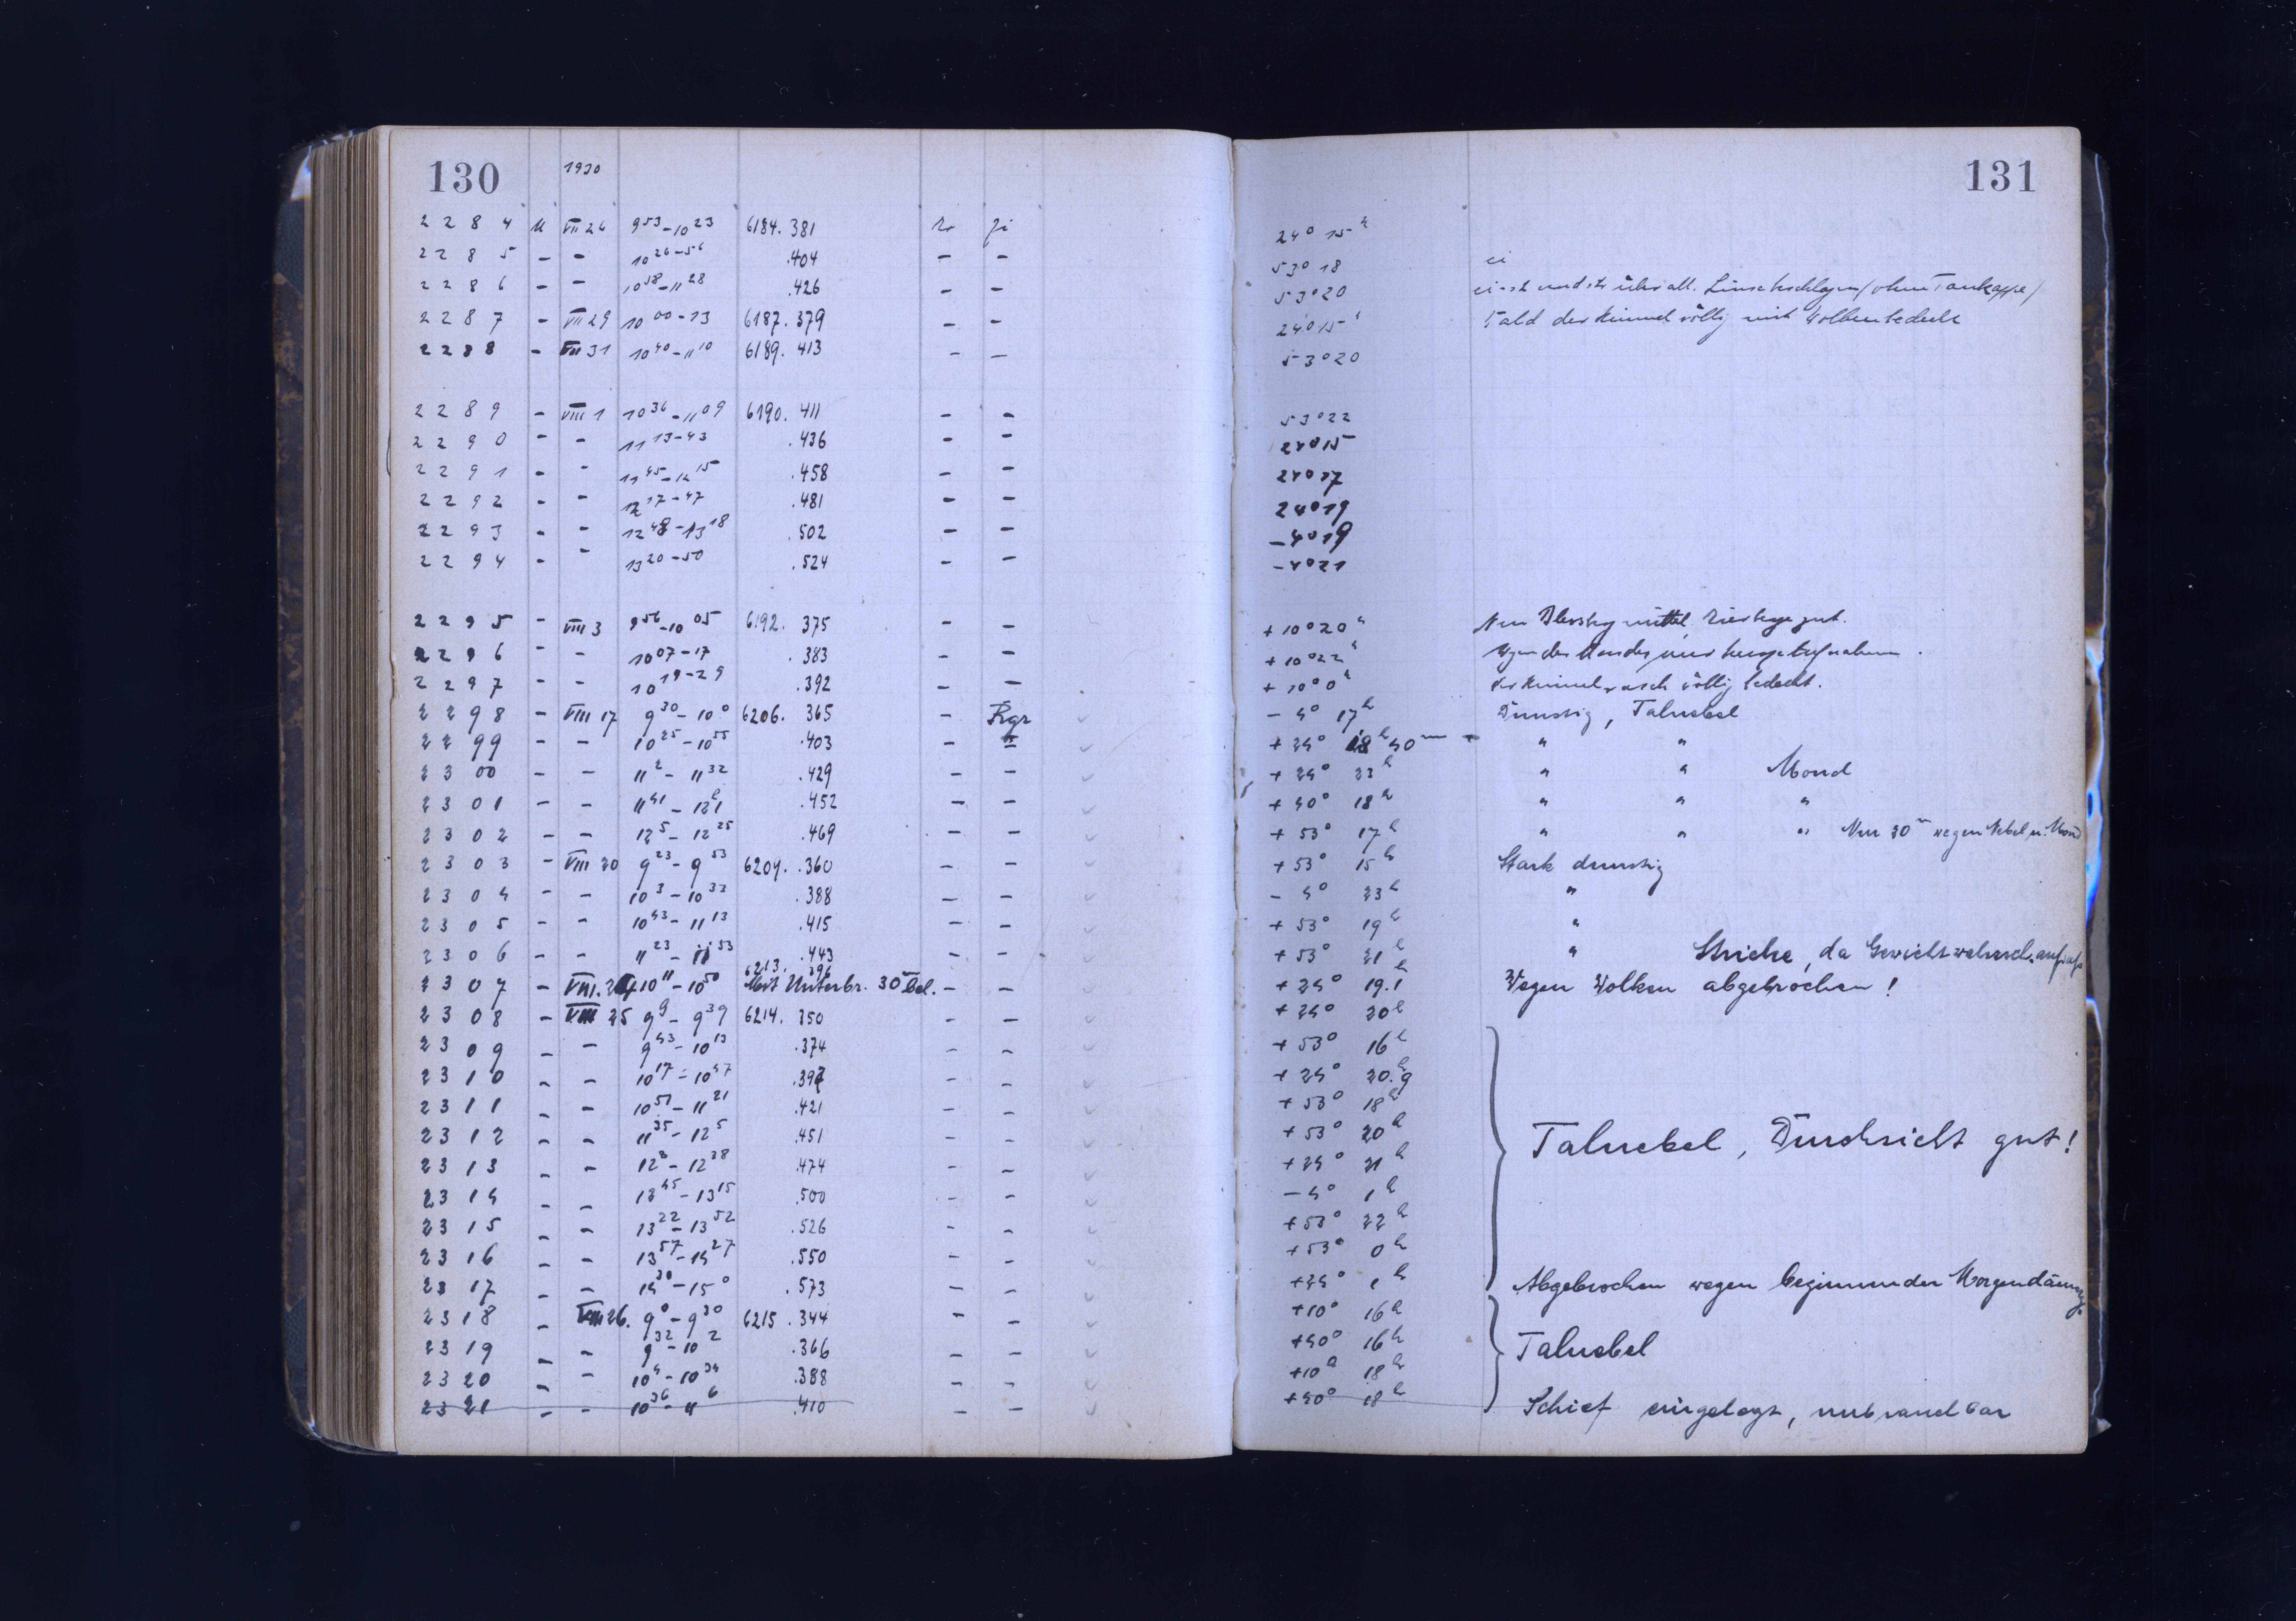 130 1930 131
2284 u VII 26 9 53 - 10 23 6184.381 24° 15 h
2285 - - 10 26 - 56 .404 - - 53° 18 ei
2286 - - 10 58 - 11 28 .426 - - 53° 20
2287 - VII 29 10 00 - 13 6187.379 - - 24° 15 h bald der Himmel völlig mit Wolken bedeckt
2288 - VII 31 10 40 - 11 10 6189.413 - - 53° 20
2289 - VIII 1 10 36 - 11 09 6190.411 - - 53° 22
2290 - - 11 13 - 43 .436 - - 24° 15
2291 - - 11 45 - 12 15 .458 - - 24° 17
2292 - - 12 17 - 47 .481 - - 24° 19
2293 - - 12 48 - 13 18 .502 - - - 4° 19
2294 - - 13 20 - 50 .524 - - - 4° 21
2295 - VIII 3 9 56 - 10 05 6192.375 - - + 10° 20 h
2296 - - 10 07 - 17 .383 - - + 10° 22 h
2297 - - 10 19 - 29 .392 - - + 10° 0 h der Himmel rasch völlig bedeckt.
2298 - VIII 17 9 30 - 10 0 6206.365 - Rgr - 4° 17 h Dunstig, Talnebel
2299 - - 10 25 - 10 55 .403 - " + 24° 18 h 40 m " "
2300 - - 11 2 - 11 32 .429 - - + 24° 23 h " " Mond
2301 - - 11 41 - 12 1 .452 - - + 40° 18 h " " "
2302 - - 12 5 - 12 25 .469 - - + 53° 17 h " " " Nur 20 m wegen Nebel u. Mond
2303 - VIII 20 9 23 - 9 53 6209.360 - - + 53° 15 h Stark dunstig
2304 - - 10 3 - 10 33 .388 - - - 4° 23 h "
2305 - - 10 43 - 11 13 .415 - - + 53° 19 h "
2306 - - 11 23 - 11 53 .443 - - + 53° 21 h " Striche, da Gewicht
2307 - VIII. 24 10 11 - 10 50 6213. 396 Mit Unterbr. 30 m bel. - - + 24° 19.1 h Wegen Wolken abgebrochen!
2308 - VIII 25 9 9 - 9 39 6214.350 - - + 24° 20 h
2309 - - 9 43 - 10 13 .374 - - + 53° 16 h
2310 - - 10 17 - 10 47 .397 - - + 24° 20.9
2311 - - 10 51 - 11 21 .421 - - + 53° 18 h
2312 - - 11 35 - 12 5 .451 - - + 53° 20 h Talnebel, Durchsicht gut!
2313 - - 12 8 - 12 38 .474 - - + 24° 21 h
2314 - - 12 45 - 13 15 .500 - - - 4° 1 h
2315 - - 13 22 - 13 52 .526 - - + 53° 22 h
2316 - - 13 57 - 14 27 .550 - - + 53° 0 h
2317 - - 14 30 - 15 0 .573 - - + 24° 1 h Abgebrochen wegen beginnender Morgendämmg.
2318 - VIII 26. 9 0 - 9 30 6215.344 - - +10° 16 h
2319 - - 9 32 - 10 2 .366 - - +40° 16 h Talnebel
2320 - - 10 4 - 10 34 .388 - - +10° 18 h
2321 - - 10 36 - 11 6 .410 - - +40° 18 h Schief eingelegt, unbrauchbar